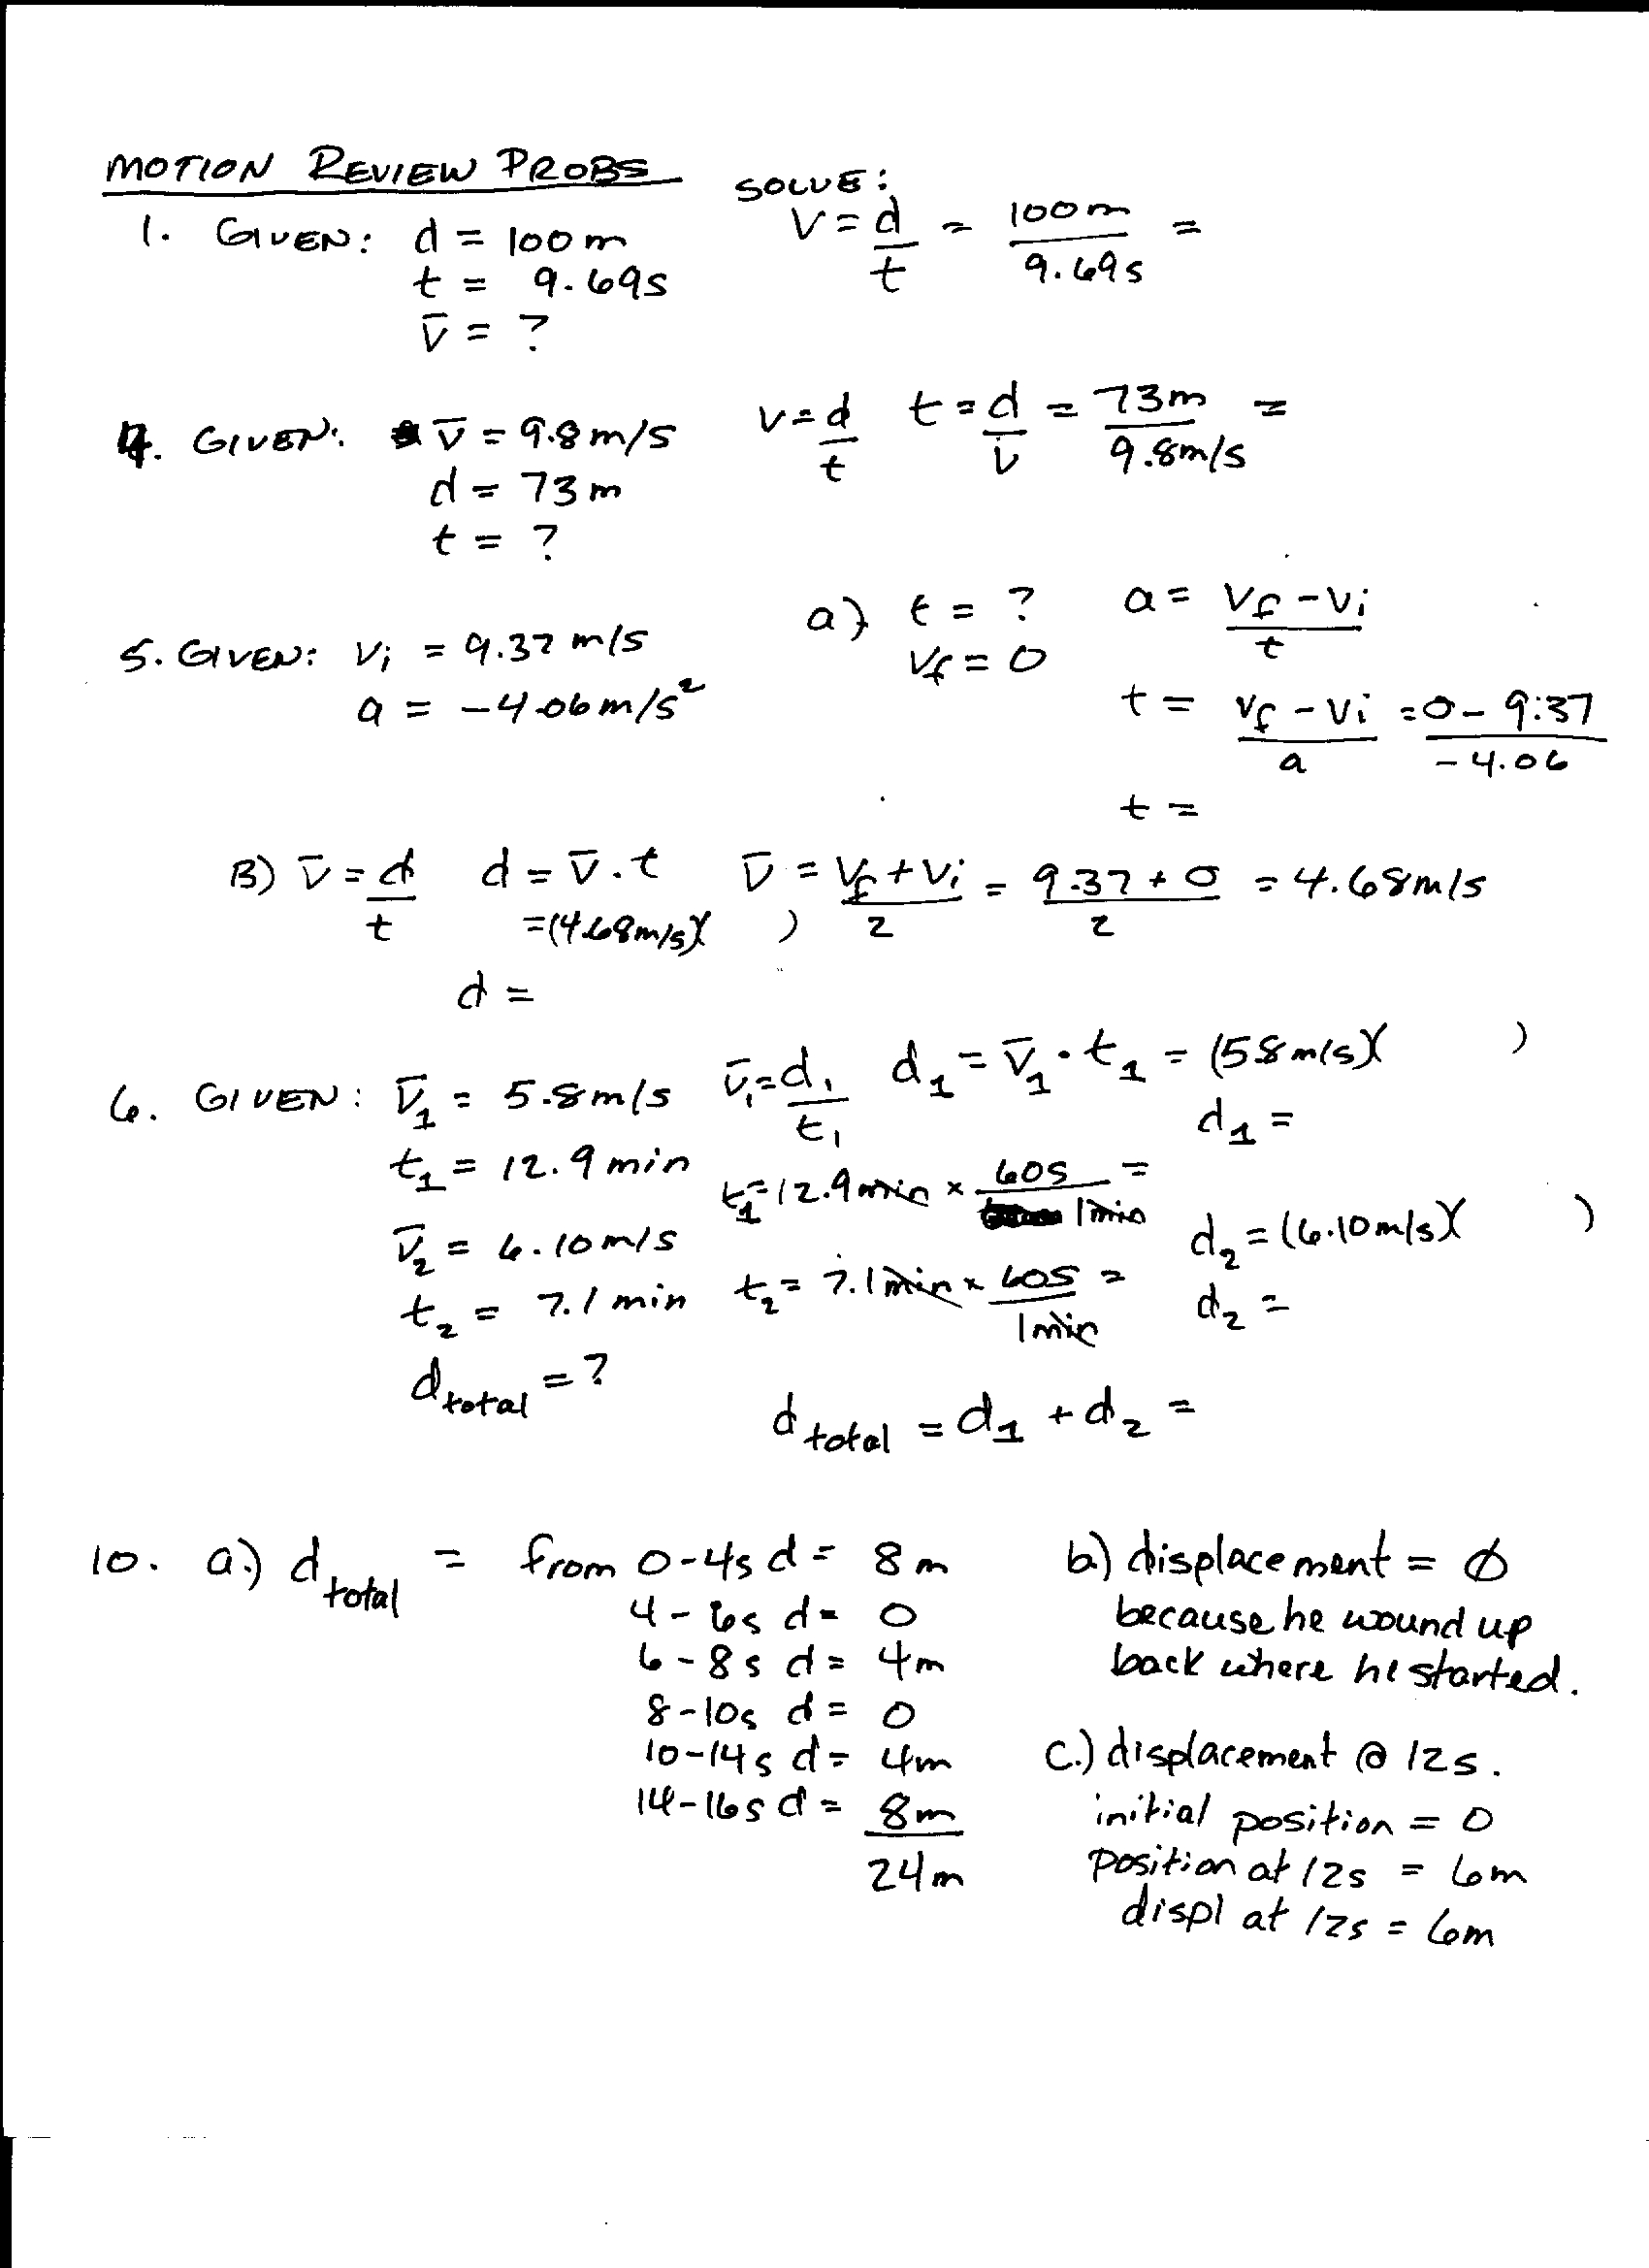 MOTION REVIEW PROBS
SOLVE:
1. GIVEN: d = 100m
t = 9.69s
v̄ = ?
v = d/t = 100m/9.69s =
4. GIVEN: v̄ = 9.8m/s
d = 73m
t = ?
v = d/t t = d/v̄ = 73m/9.8m/s =
5. GIVEN: vi = 9.37 m/s
a = -4.06m/s²
a) t = ?
vf = 0
a = vf - vi/t
t = vf - vi/a = 0 - 9.37/-4.06
t =
B) v̄ = d/t d = v̄ · t v̄ = vf + vi/2 = 9.37 + 0/2 = 4.68m/s
=(4.68m/s)( )
d =
6. GIVEN: v̄1 = 5.8m/s v̄1 = d1/t1 d1 = v̄1 · t1 = (58m/s)( )
d1 =
t1 = 12.9min t1 = 12.9min x 60s/1min =
v̄2 = 6.10m/s d2 = (6.10m/s)( )
t2 = 7.1min t2 = 7.1min x 60s/1min = d2 =
dtotal = ?
dtotal = d1 + d2 =
10. a.) dtotal = from 0-4s d = 8m
4-6s d = 0
6-8s d = 4m
8-10s d = 0
10-14s d = 4m
14-16s d = 8m
24m
b.) displacement = Ø
because he wound up
back where he started.
c.) displacement @ 12s.
initial position = 0
position at 12s = 6m
displ at 12s = 6m